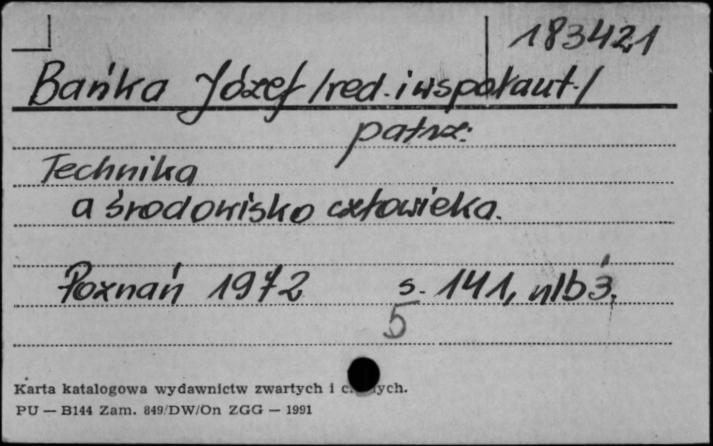 183421
Bańka Józef /red. i współaut./
patrz:
Technika
a środowisko człowieka.
Poznań 1972 s. 141, nlb 3.
5
Karta katalogowa wydawnictw zwartych i
PU — B144 Zam. 849/DW/On ZGG — 1991